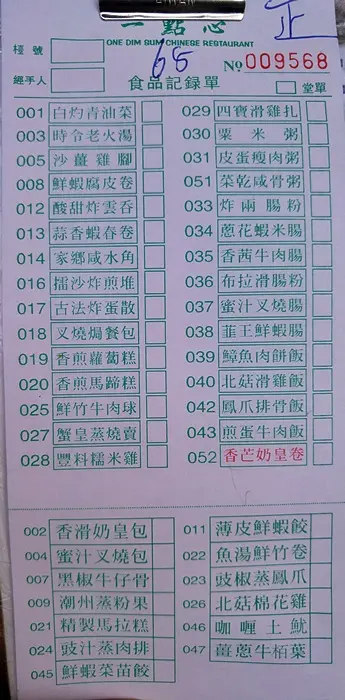 一點心
ONE DIM SUM CHINESE RESTAURANT
正
檯號
68
No 009568
經手人
食品記録單
堂單
001 白灼青油菜
003 時令老火湯
005 沙薑雞腳
008 鮮蝦腐皮卷
012 酸甜炸雲吞
013 蒜香蝦春卷
014 家鄉咸水角
016 擂沙炸煎堆
017 古法炸蛋散
018 叉燒焗餐包
019 香煎蘿蔔糕
020 香煎馬蹄糕
025 鮮竹牛肉球
027 蟹皇蒸燒賣
028 豐料糯米雞
029 四寶滑雞扎
030 粟米粥
031 皮蛋瘦肉粥
051 菜乾咸骨粥
033 炸兩腸粉
034 蔥花蝦米腸
035 香茜牛肉腸
036 布拉滑腸粉
037 蜜汁叉燒腸
038 韮王鮮蝦腸
039 鱆魚肉餅飯
040 北菇滑雞飯
042 鳳爪排骨飯
043 煎蛋牛肉飯
052 香芒奶皇卷
002 香滑奶皇包
004 蜜汁叉燒包
007 黑椒牛仔骨
009 潮州蒸粉果
021 精製馬拉糕
024 豉汁蒸肉排
045 鮮蝦菜苗餃
011 薄皮鮮蝦餃
022 魚湯鮮竹卷
023 豉椒蒸鳳爪
026 北菇棉花雞
046 咖喱土魷
047 薑蔥牛栢葉